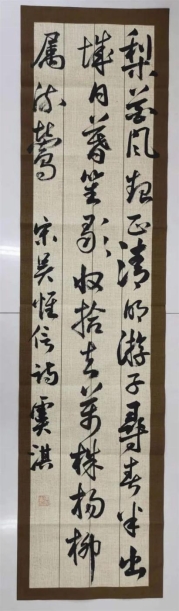 梨花风起正清明游子尋春半出
城日暮笙歌收拾去萬株杨柳
属流莺 宋吴惟信诗